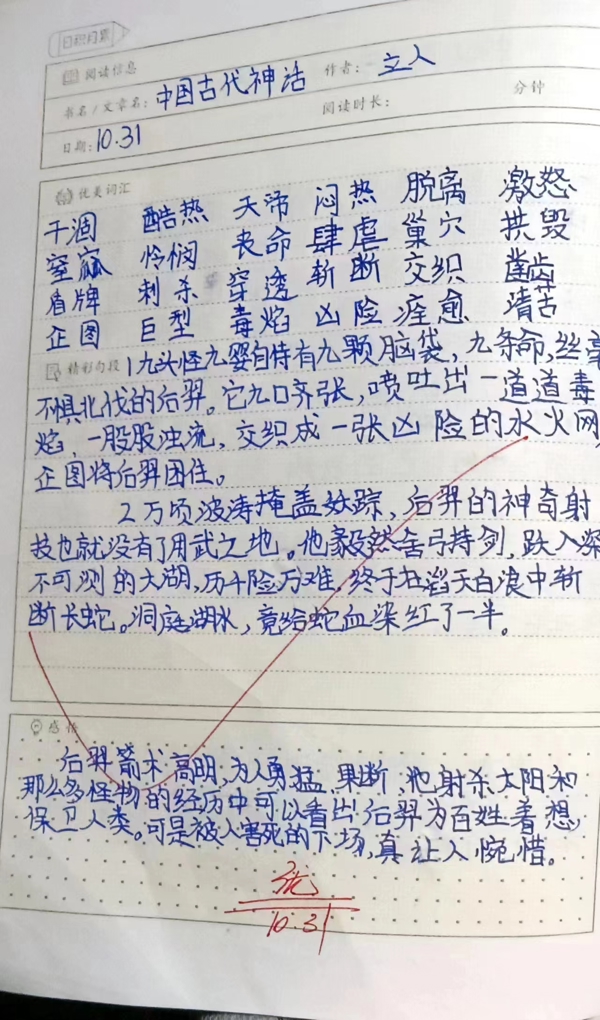 日积月累
阅读信息
书名/文章名：中国古代神话 作者：立人
日期：10.31 阅读时长： 分钟
优美词汇
干涸 酷热 天帝 闷热 脱离 激怒
窒寙 怜悯 丧命 肆虐 巢穴 拱毁
盾牌 刺杀 穿透 斩断 交织 凿齿
企图 巨型 毒焰 凶险 痊愈
精彩句段 1九头怪九婴自恃有九颗脑袋，九条命，丝毫
不惧北伐的后羿。它九口齐张，喷吐出一道道毒
焰，一股股浊流，交织成一张凶险的水火网，
企图将后羿困住。
2万顷波涛掩盖妖踪，后羿的神奇射
技也就没有了用武之地。他毅然舍弓持剑，跃入深
不可测的大湖，历千险万难，终于在滔天白浪中斩
断长蛇。洞庭湖水，竟给蛇血染红了一半。
感悟
后羿箭术高明，为人勇猛、果断，他射杀太阳和
那么多怪物的经历中可以看出后羿为百姓着想，
保卫人类。可是被人害死的下场，真让人惋惜。
优
10.31